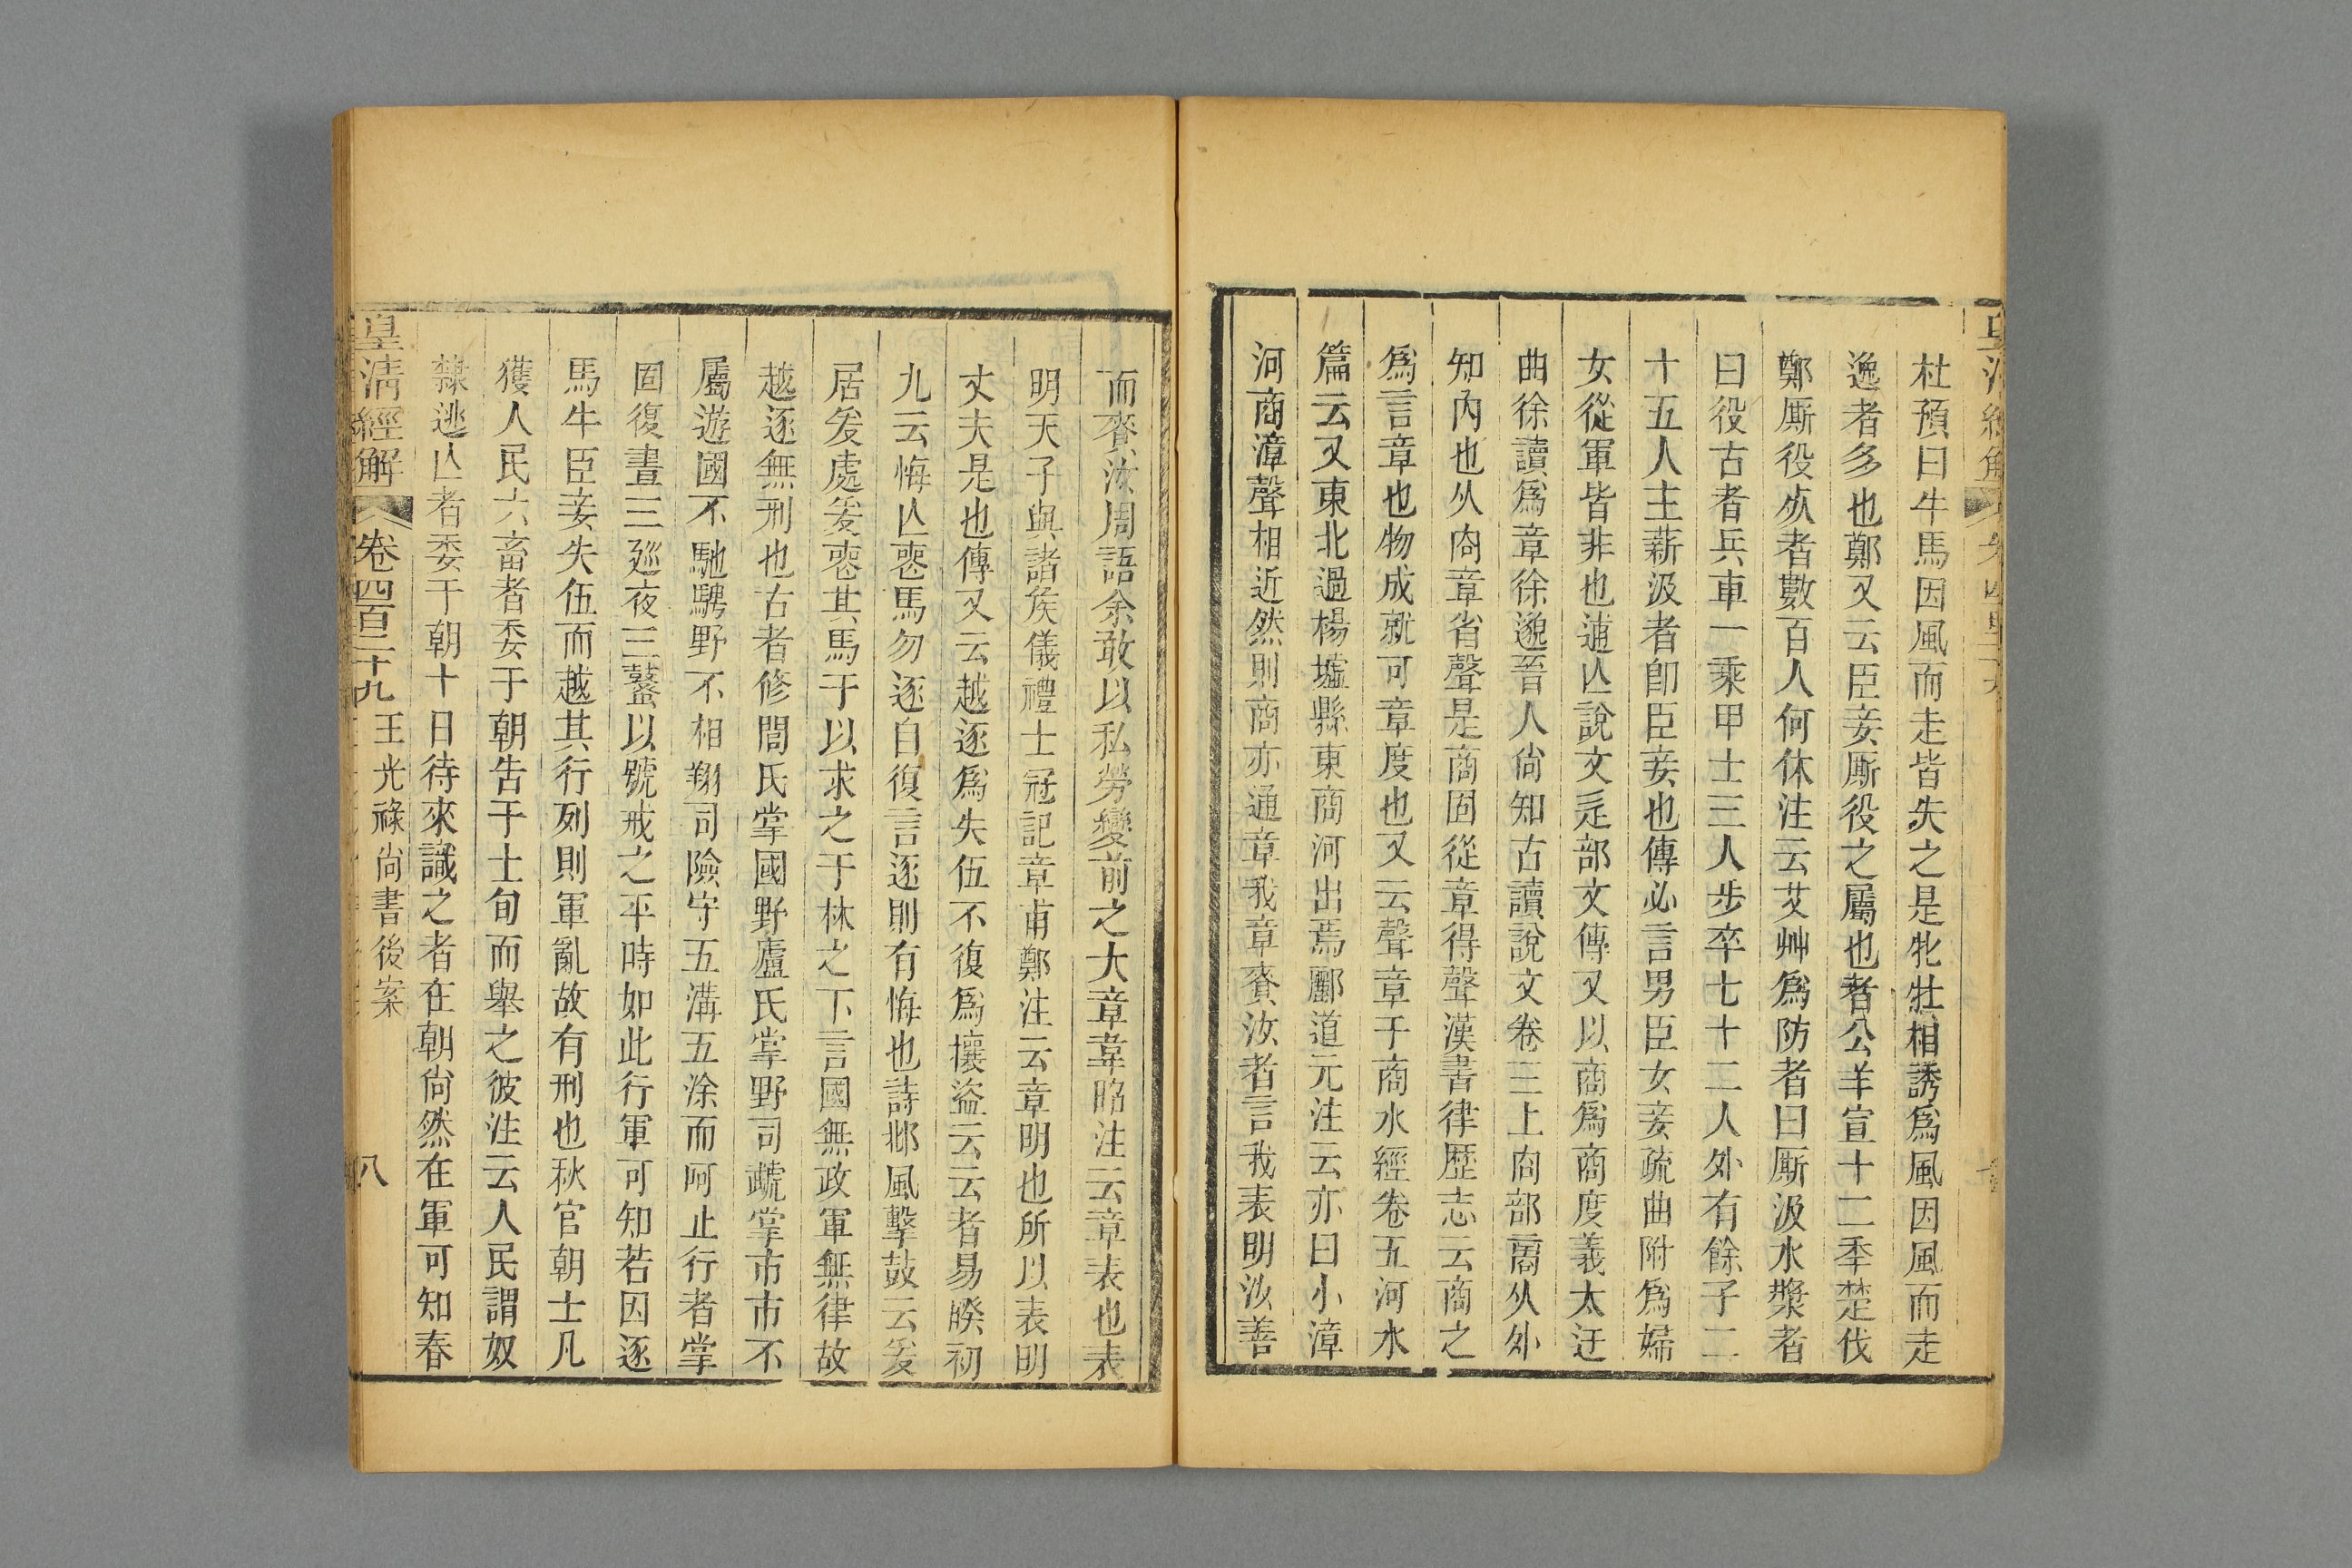 杜預曰牛馬因風而走皆失之是牝牡相誘爲風因風而走
逸者多也鄭又云臣妾厮役之屬也者公羊宣十二秊楚伐
鄭厮役㱙者數百人何休注云艾艸爲防者曰厮汲水漿者
曰役古者兵車一乘甲士三人步卒七十二人外有餘子二
十五人主薪汲者卽臣妾也傳必言男臣女妾疏曲附爲婦
女從軍皆非也逋亾說文辵部文傳又以商爲商度義太迂
曲徐讀爲章徐邈晉人尙知古讀說文卷三上㕯部商从外
知內也从㕯章省聲是商固從章得聲漢書律歷志云商之
爲言章也物成就可章度也又云聲章于商水經卷五河水
篇云又東北過楊墟縣東商河出焉酈道元注云亦曰小漳
河商漳聲相近然則商亦通章我章賚汝者言我表明汝善
而賚汝周語余敢以私勞變前之大章韋昭注云章表也表
明天子與諸矦儀禮士冠記章甫鄭注云章明也所以表明
丈夫是也傳又云越逐爲失伍不復爲攘盜云云者易睽初
九云悔亾喪馬勿逐自復言逐則有悔也詩邶風擊鼓云爰
居爰處爰喪其馬于以求之于林之下言國無政軍無律故
越逐無刑也古者修閭氏掌國野廬氏掌野司虣掌市市不
屬遊國不馳騁野不相翔司險守五溝五涂而呵止行者掌
固復晝三廵夜三鼜以號戒之平時如此行軍可知若因逐
馬牛臣妾失伍而越其行列則軍亂故有刑也秋官朝士凡
獲人民六畜者委于朝告于士旬而舉之彼注云人民謂奴
隸逃亾者委于朝十日待來識之者在朝尙然在軍可知春
皇清經解 卷四百二十九 王光祿尙書後案 八